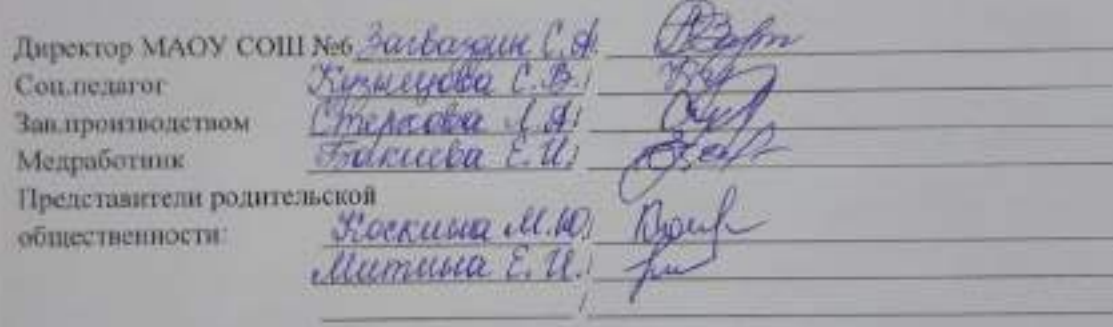 Директор МАОУ СОШ №6 Загваздин С.А.
Соц.педагог Кузнецова С.В./
Зав.производством Стеркова Л.А/
Медработник Бакиева Е.И/
Представители родительской
общественности: Коскина М.Ю/
Митина Е.И./
/